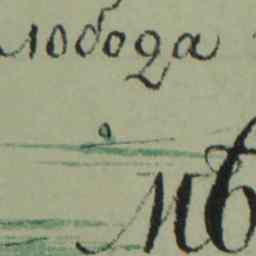 лобода
МѢ